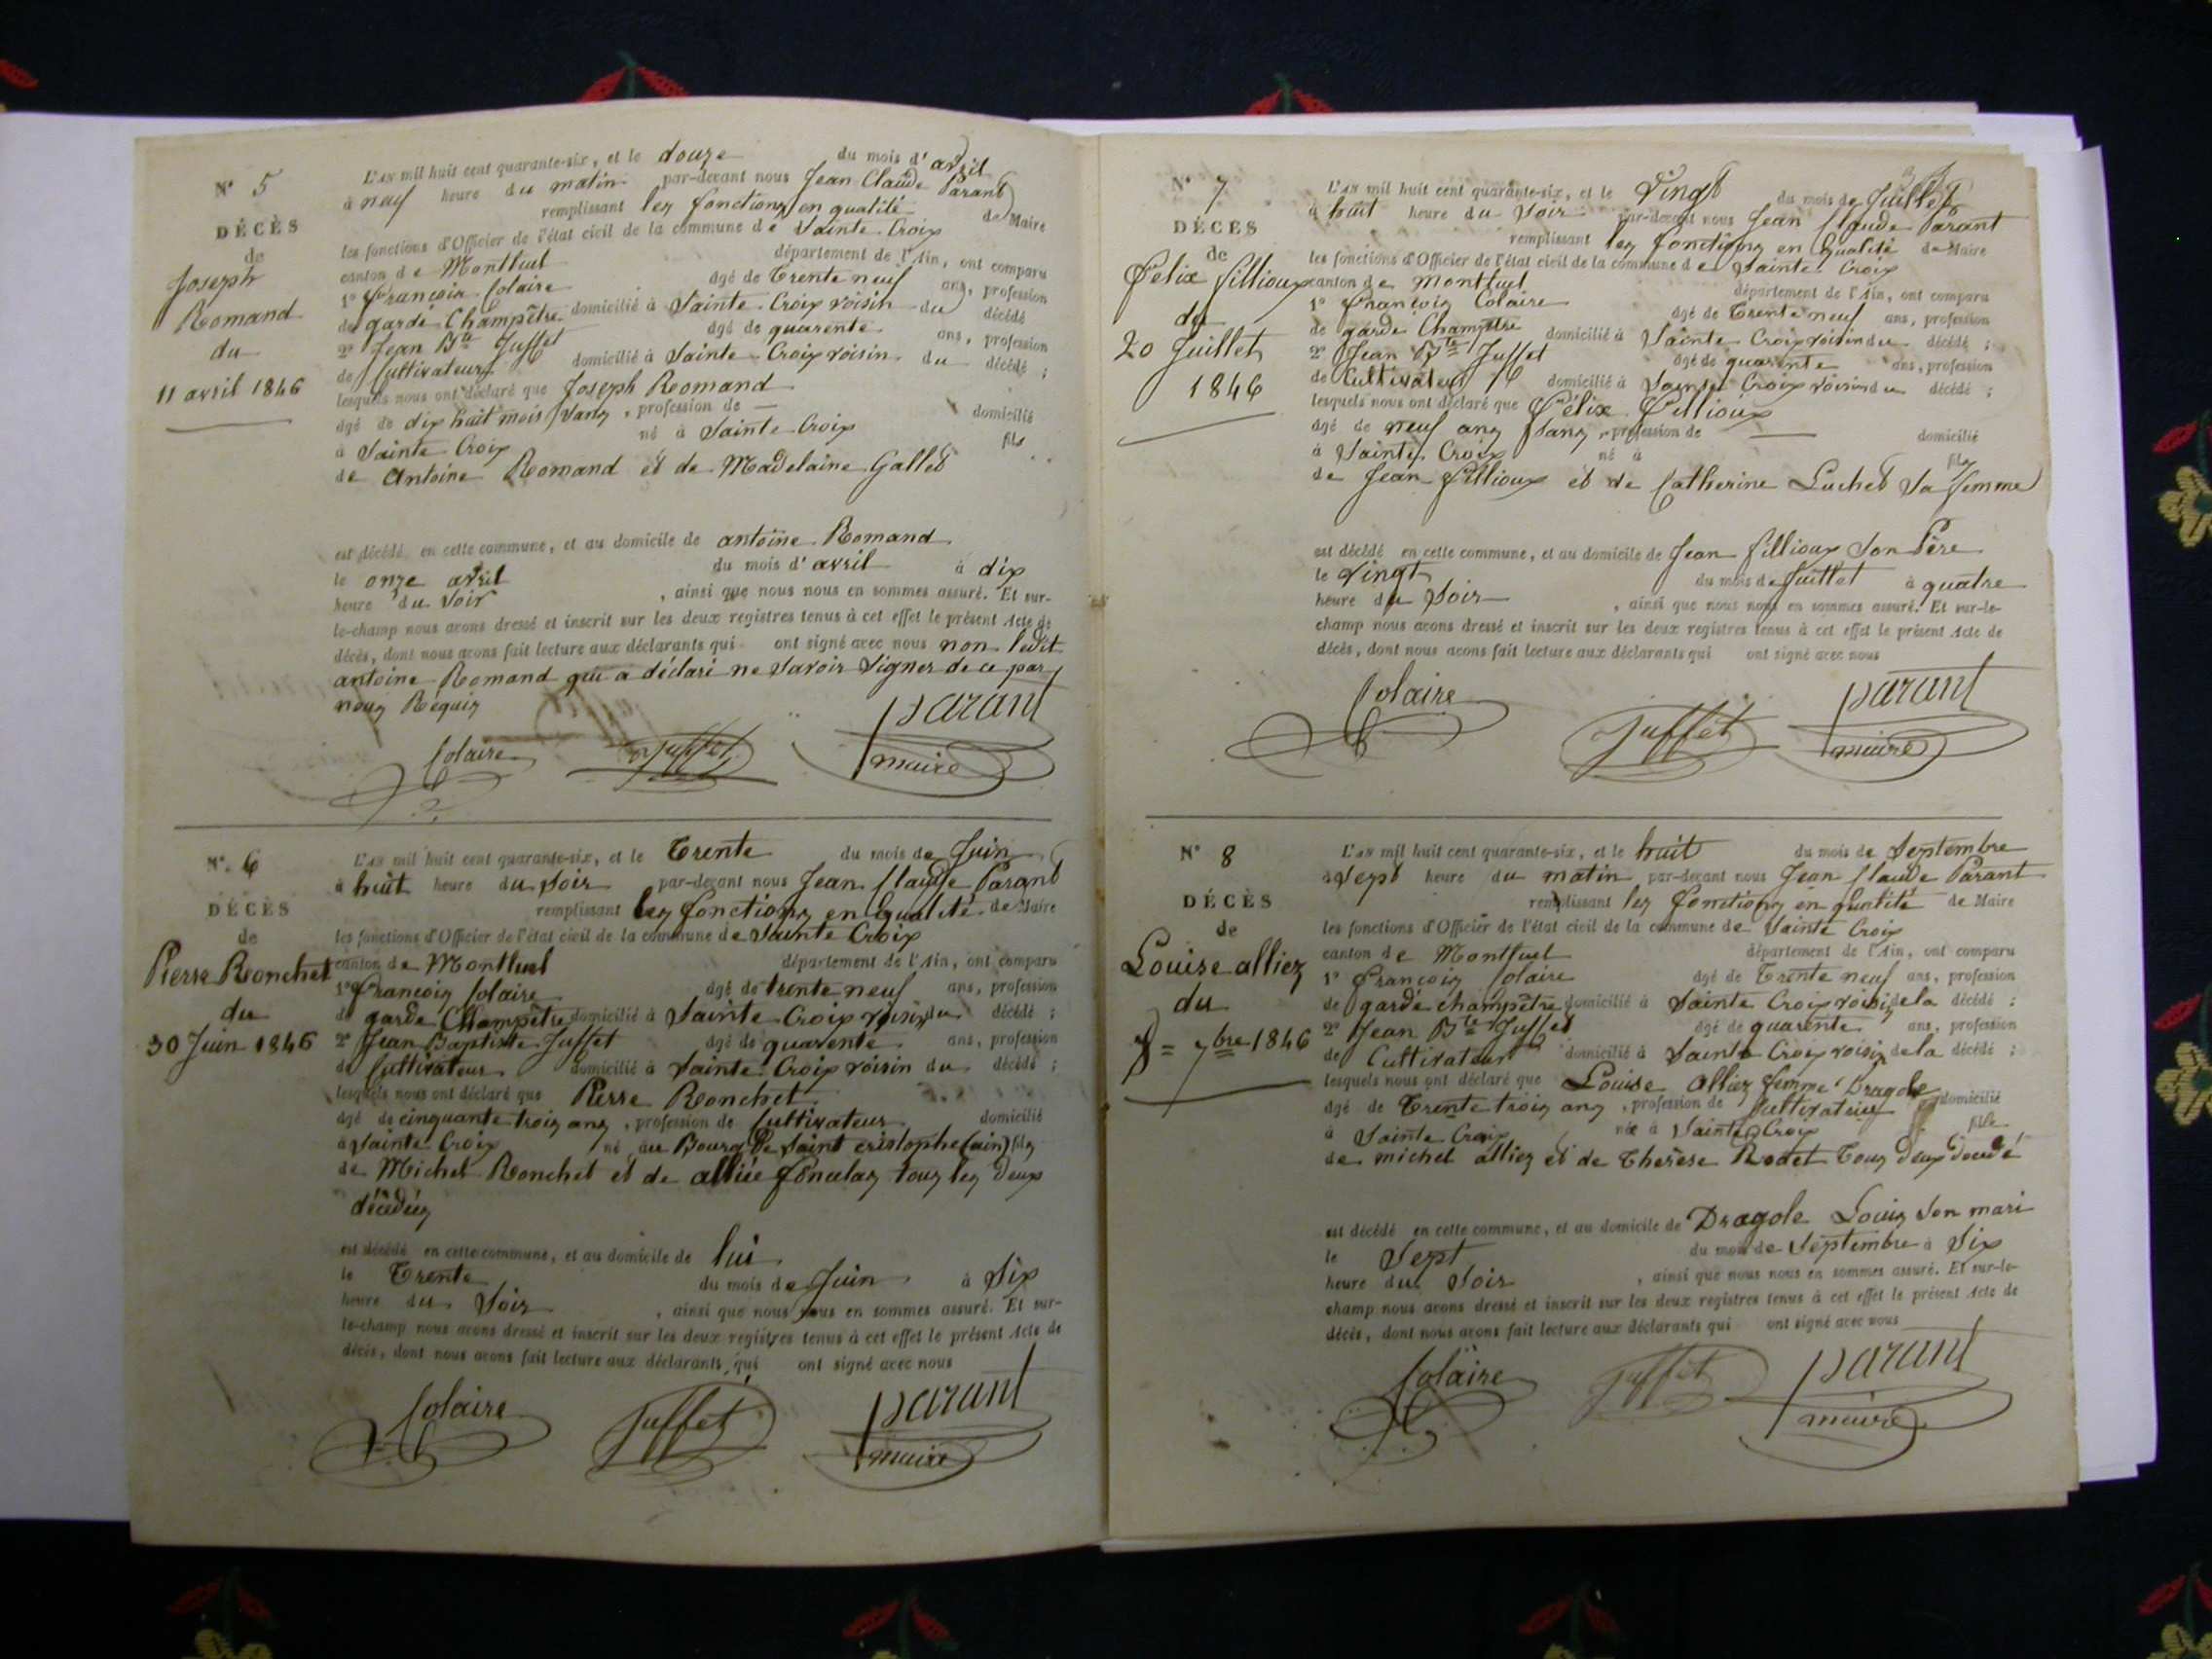 N° 5
DÉCÈS
de
Joseph
Romand
du
11 avril 1846
L'AN mil huit cent quarante-six, et le douze du mois d'avril
à neuf heure du matin par-devant nous Jean Claude Parant
remplissant les fonctions en qualité de Maire
les fonctions d'Officier de l'état civil de la commune de Sainte Croix
canton de Montluel département de l'Ain, ont comparu
1° François Colaire âgé de Trente neuf ans, profession
de garde Champêtre domicilié à Sainte Croix voisin du décédé
2° Jean Bte Juffet âgé de quarente ans, profession
de Cultivateur domicilié à Sainte Croix voisin du décédé ;
lesquels nous ont déclaré que Joseph Romand
âgé de dix huit mois sans , profession de — domicilié
à Sainte Croix né à Sainte Croix fils
de Antoine Romand et de Madelaine Gallet
est décédé en cette commune, et au domicile de antoine Romand
le onze avril du mois d'avril à dix
heure du Soir , ainsi que nous nous en sommes assuré. Et sur-
le-champ nous avons dressé et inscrit sur les deux registres tenus à cet effet le présent Acte de
décès, dont nous avons fait lecture aux déclarants qui ont signé avec nous non ledit
antoine Romand qui a déclaré ne Savoir Signer de ce par
nous Requis
Colaire Juffet Parant
maire
N° 6
DÉCÈS
de
Pierre Ronchet
du
30 Juin 1846
L'AN mil huit cent quarante-six, et le Trente du mois de Juin
à huit heure du Soir par-devant nous Jean Claude Parant
remplissant les fonctions en qualité de Maire
les fonctions d'Officier de l'état civil de la commune de Sainte Croix
canton de Montluel département de l'Ain, ont comparu
1° François Colaire âgé de trente neuf ans, profession
de garde Champêtre domicilié à Sainte Croix voisin du décédé ;
2° Jean Baptiste Juffet âgé de quarente ans, profession
de Cultivateur domicilié à Sainte Croix voisin du décédé ;
lesquels nous ont déclaré que Pierre Ronchet
âgé de cinquante trois ans , profession de Cultivateur domicilié
à Sainte Croix né au Bourg de Saint cristophe (ain) fils
de Michel Ronchet et de tous les Deux
décédés
est décédé en cette commune, et au domicile de lui
le Trente du mois de Juin à Six
heure du Soir , ainsi que nous nous en sommes assuré. Et sur-
le-champ nous avons dressé et inscrit sur les deux registres tenus à cet effet le présent Acte de
décès, dont nous avons fait lecture aux déclarants qui ont signé avec nous
Colaire Juffet Parant
maire
N° 7
DÉCÈS
de
Félix fillioux
du
20 Juillet
1846
L'AN mil huit cent quarante-six, et le Vingt du mois de Juillet
à huit heure du Soir par-devant nous Jean Claude Parant
remplissant les fonctions en Qualité de Maire
les fonctions d'Officier de l'état civil de la commune de Sainte Croix
canton de Montluel département de l'Ain, ont comparu
1° François Colaire âgé de Trente neuf ans, profession
de garde Champêtre domicilié à Sainte Croix voisin du décédé ;
2° Jean Bte Juffet âgé de quarente ans, profession
de Cultivateur domicilié à Sainte Croix voisin du décédé ;
lesquels nous ont déclaré que Félix Fillioux
âgé de neuf ans sans , profession de — domicilié
à Sainte Croix né à fils
de Jean fillioux et de Catherine Luchet Sa femme
est décédé en cette commune, et au domicile de Jean fillioux Son Père
le Vingt du mois de Juillet à quatre
heure du Soir , ainsi que nous nous en sommes assuré. Et sur-le-
champ nous avons dressé et inscrit sur les deux registres tenus à cet effet le présent Acte de
décès, dont nous avons fait lecture aux déclarants qui ont signé avec nous
Colaire Juffet Parant
maire
N° 8
DÉCÈS
de
Louise alliez
du
8 = 7bre 1846
L'AN mil huit cent quarante-six, et le huit du mois de Septembre
à Sept heure du matin par-devant nous Jean Claude Parant
remplissant les fonctions en qualité de Maire
les fonctions d'Officier de l'état civil de la commune de Sainte Croix
canton de Montluel département de l'Ain, ont comparu
1° François Colaire âgé de Trente neuf ans, profession
de garde champêtre domicilié à Sainte Croix voisin de la décédé ;
2° Jean Bte Juffet âgé de quarente ans, profession
de Cultivateur domicilié à Sainte Croix voisin de la décédé ;
lesquels nous ont déclaré que Louise Alliez femme Dragole
âgé de Trente trois ans , profession de Cultivatrice domicilié
à Sainte Croix née à Sainte Croix fille
de michel alliez et de Therèse Rodet Tous deux décedé
est décédé en cette commune, et au domicile de Dragole Louis Son mari
le Sept du mois de Septembre à Six
heure du Soir , ainsi que nous nous en sommes assuré. Et sur-le-
champ nous avons dressé et inscrit sur les deux registres tenus à cet effet le présent Acte de
décès, dont nous avons fait lecture aux déclarants qui ont signé avec nous
Colaire Juffet Parant
maire